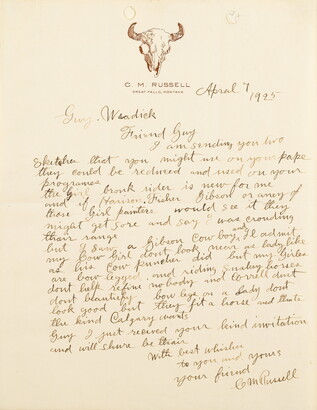 C. M. RUSSELL
GREAT FALLS, MONTANA
Apral 7
1925
Guy. Weadick
Friend Guy
I am sending you two
sketches that you might use on your pape
they could be reduced and used on your
programs
the Girl bronk rider is new for me
and if Hanson, Fisher Gibson or any of
those Girl painters would see it they
might get sore and say I was crouding
thair range
but I saw a Gibson Cow boy and Il admit
my Cow Girl dont look near as lady like
as his Cow puncher did but my Girls
are bow leged and riding smokey horses
dont help refine nobody and
dont beautify bow legs on a lady dont
look good but they fit a horse and thats
the kind Calgary wants
Guy I just recived your kind invitation
and will shure be thair
With best whishes
to you and yours
your friend
CM Russell